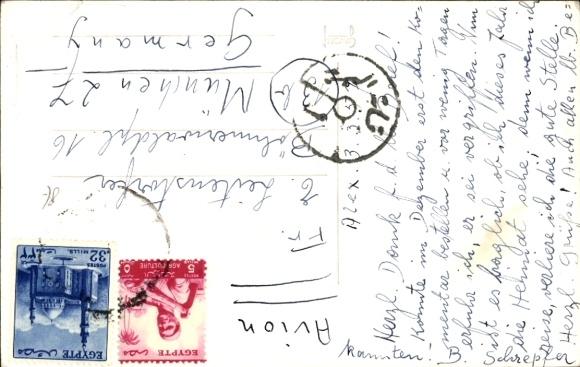 Alex. 3.
Herzl. Dank f. d. Brief!
Konnte im Dezember erst den Ko-
mentar bestellen u. vor wenig Tagen
erfuhr ich, er sei vergriffen. Nun
ist es fraglich, ob ich dieses Jahr
die Heimat sehe, denn wenn ich
reise, verliere ich die gute Stelle.
Herzl. Grüße! Auch allen lb. Be-
kannten! B. Schrepfer
Avion
Fr.
E Leitenstorfer
Böhmerwaldpl. 16
13b München 27
Germany
POSTES
32 MILLS
٣٢
EGYPTE مصر
5
AGRICULTURE
POSTES
EGYPTE مصر